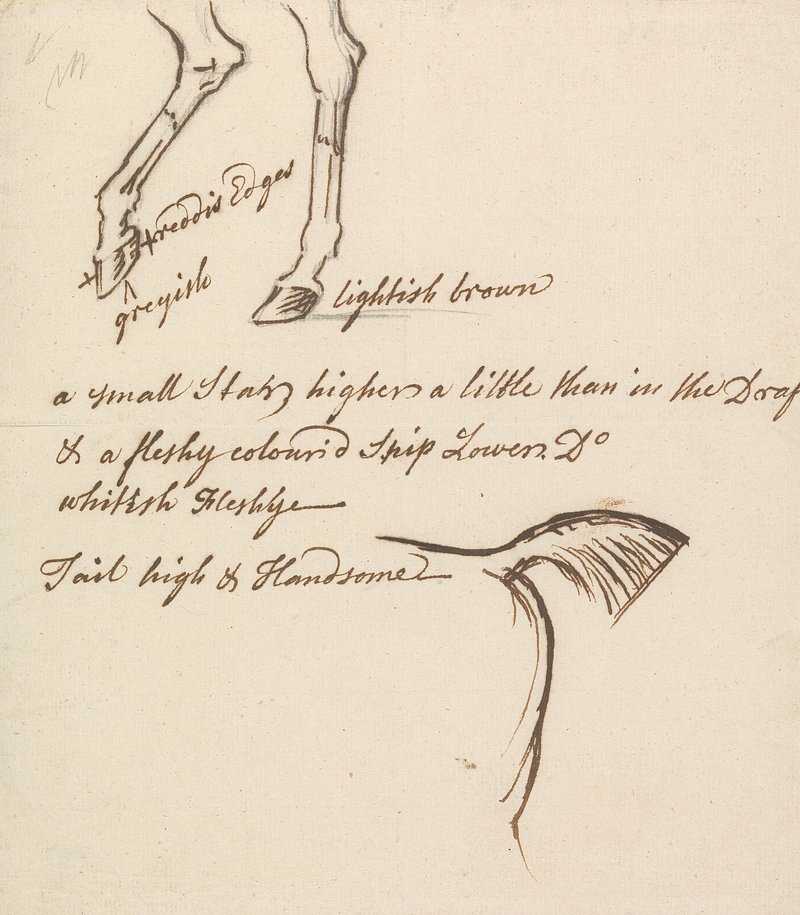 reddis Edges
greyish
lightish brown
a small Star higher a little than in the Draf
& a fleshy colour'd Snip Lower. Do
whitish Fleshye
Tail high & Handsome